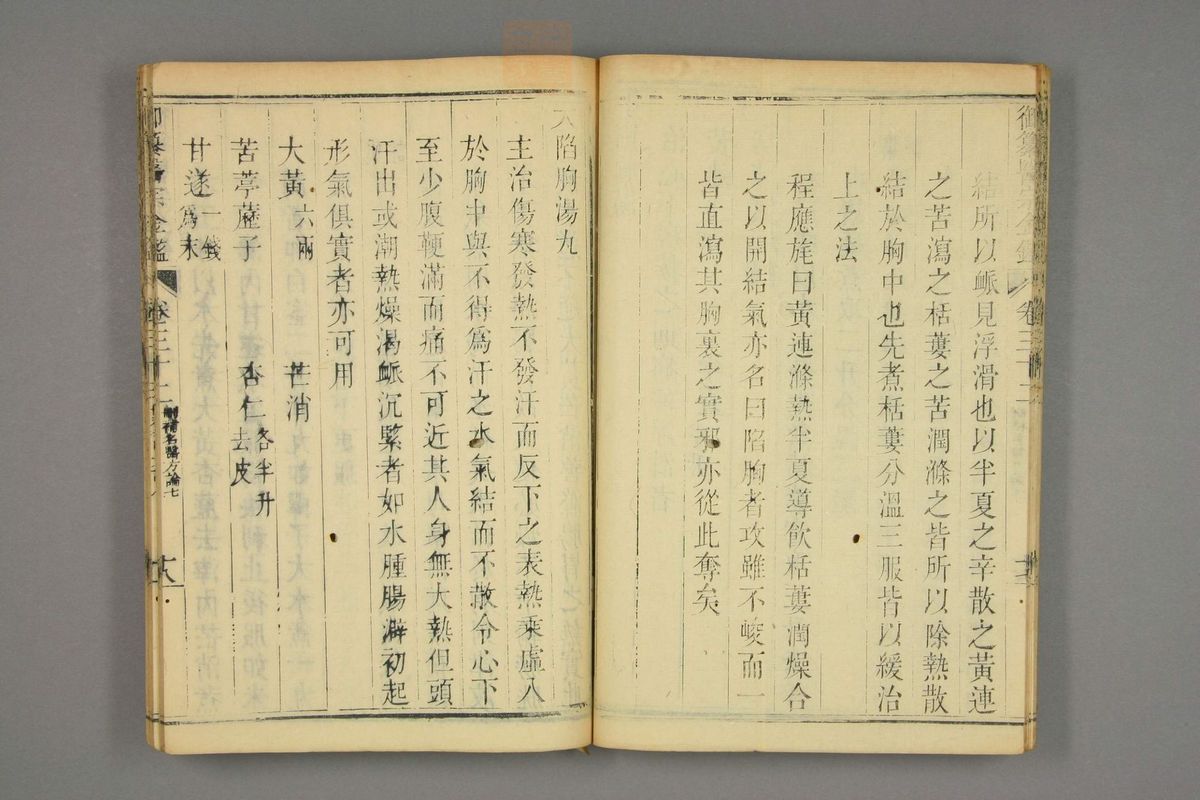 御纂醫宗金鑑 卷三十二
結所以䘑見浮滑也以半夏之辛散之黃連
之苦瀉之栝蔞之苦潤滌之皆所以除熱散
結於胸中也先煮栝蔞分溫三服皆以緩治
上之法
程應旄曰黃連滌熱半夏導飲栝蔞潤燥合
之以開結氣亦名曰陷胸者攻雖不峻而一
皆直瀉其胸裏之實邪亦從此奪矣
大陷胸湯丸
主治傷寒發熱不發汗而反下之表熱乘虛入
於胸中與不得爲汗之水氣結而不散令心下
至少腹鞕滿而痛不可近其人身無大熱但頭
汗出或潮熱燥渴䘑沉緊者如水腫腸澼初起
形氣俱實者亦可用
大黃六兩 芒消
苦葶藶子 杏仁去皮各半升
甘遂一錢爲末
御纂醫宗金鑑 卷三十二 刪補名醫方論七 十八